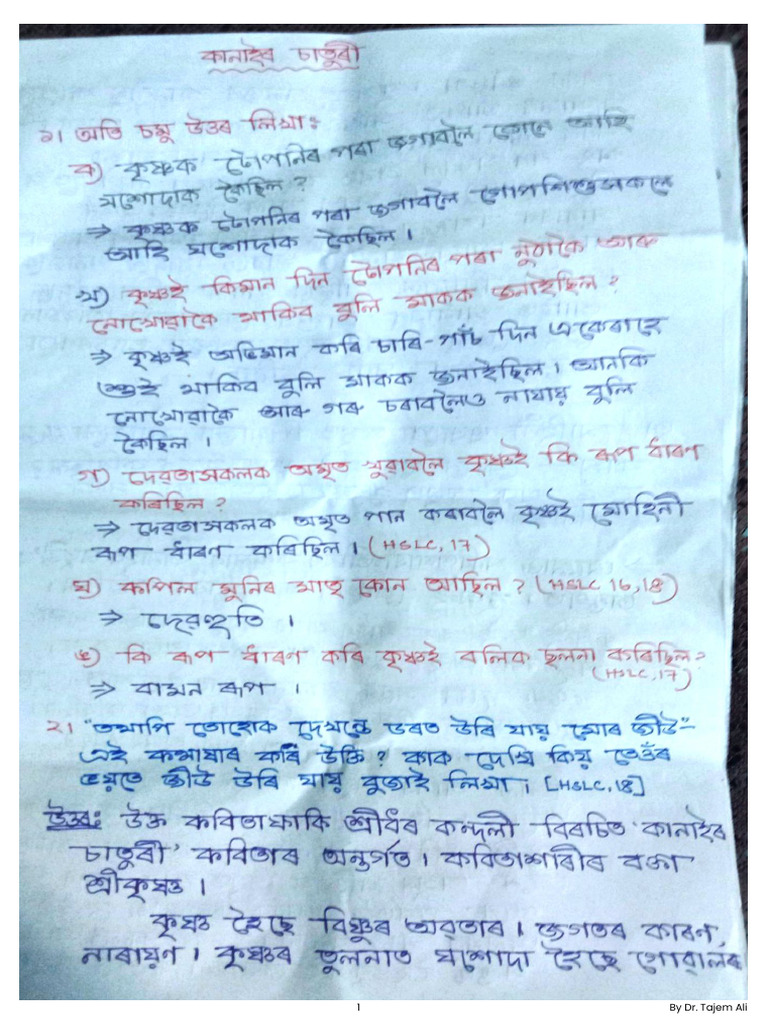 কানাইৰ চাতুৰী
১। অতি চমু উত্তৰ লিখা:
ক) কৃষ্ণক টোপনিৰ পৰা জগাবলৈ কোনে আহি
যশোদাক কৈছিল ?
⇒ কৃষ্ণক টোপনিৰ পৰা জগাবলৈ গোপশিশুসকলে
আহি যশোদাক কৈছিল ।
খ) কৃষ্ণই কিমান দিন টোপনিৰ পৰা নুঠাকৈ আৰু
নোখোৱাকৈ থাকিব বুলি মাকক জনাইছিল ?
⇒ কৃষ্ণই অভিমান কৰি চাৰি-পাঁচ দিন একেৰাহে
শুই থাকিব বুলি মাকক জনাইছিল । আনকি
নোখোৱাকৈ আৰু গৰু চৰাবলৈও নাযায় বুলি
কৈছিল ।
গ) দেৱতাসকলক অমৃত খুৱাবলৈ কৃষ্ণই কি ৰূপ ধাৰণ
কৰিছিল ?
⇒ দেৱতাসকলক অমৃত পান কৰাবলৈ কৃষ্ণই মোহিনী
ৰূপ ধাৰণ কৰিছিল । (HSLC, 17)
ঘ) কপিল মুনিৰ মাতৃ কোন আছিল ? (HSLC 16, 18)
⇒ দেৱহুতি ।
ঙ) কি ৰূপ ধাৰণ কৰি কৃষ্ণই বলিক ছলনা কৰিছিল ?
(HSLC, 17)
⇒ বামন ৰূপ ।
২। "তথাপি তোহোক দেখন্তে ডৰত উৰি যায় মোৰ জীউ"-
এই কথাষাৰ কাৰ উক্তি ? কাক দেখি কিয় তেওঁৰ
ভয়তে জীউ উৰি যায় বুজাই লিখা । [HSLC, 18]
উত্তৰ: উক্ত কবিতাফাকি শ্ৰীধৰ কন্দলী বিৰচিত 'কানাইৰ
চাতুৰী' কবিতাৰ অন্তৰ্গত । কবিতাশাৰীৰ বক্তা
শ্ৰীকৃষ্ণ ।
কৃষ্ণ হৈছে বিষ্ণুৰ অৱতাৰ । জগতৰ কাৰণ,
নাৰায়ণ । কৃষ্ণৰ তুলনাত যশোদা হৈছে গোৱালৰ
1
By Dr. Tajem Ali